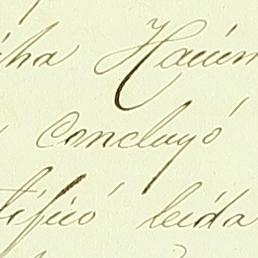 cha Hacien
concluyó
tificó leida